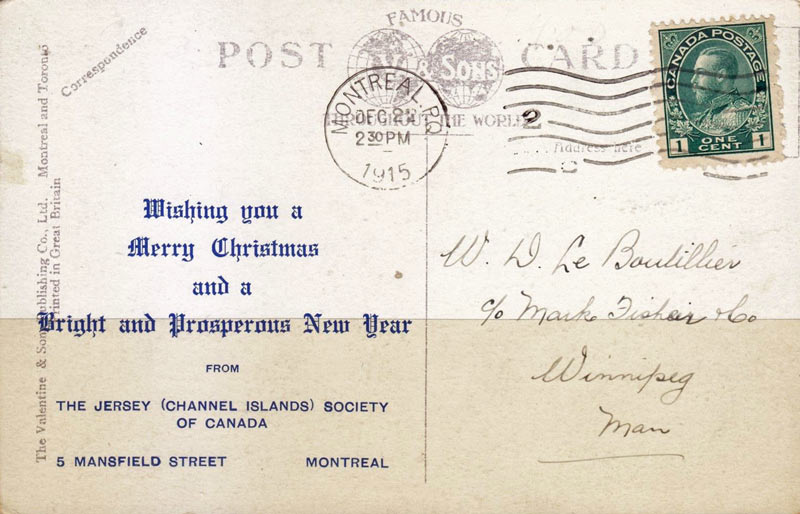 FAMOUS
POST CARD
& SONS
THROUGHOUT THE WORLD
Correspondence
Address here
MONTREAL. P.Q.
DEC 21
2 30 PM
1915
2
CANADA POSTAGE
ONE
CENT
1 1
The Valentine & Sons Publishing Co., Ltd. Montreal and Toronto
Printed in Great Britain
Wishing you a
Merry Christmas
and a
Bright and Prosperous New Year
FROM
THE JERSEY (CHANNEL ISLANDS) SOCIETY
OF CANADA
5 MANSFIELD STREET MONTREAL
W. D. Le Boutillier
c/o Mark Fisher & Co
Winnipeg
Man